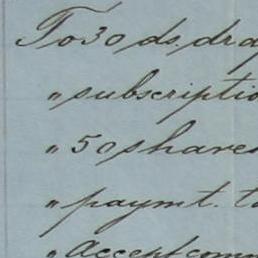 To 30 ds. dra
" subscriptio
" 50 shares
" paymt. t
" Accept comm